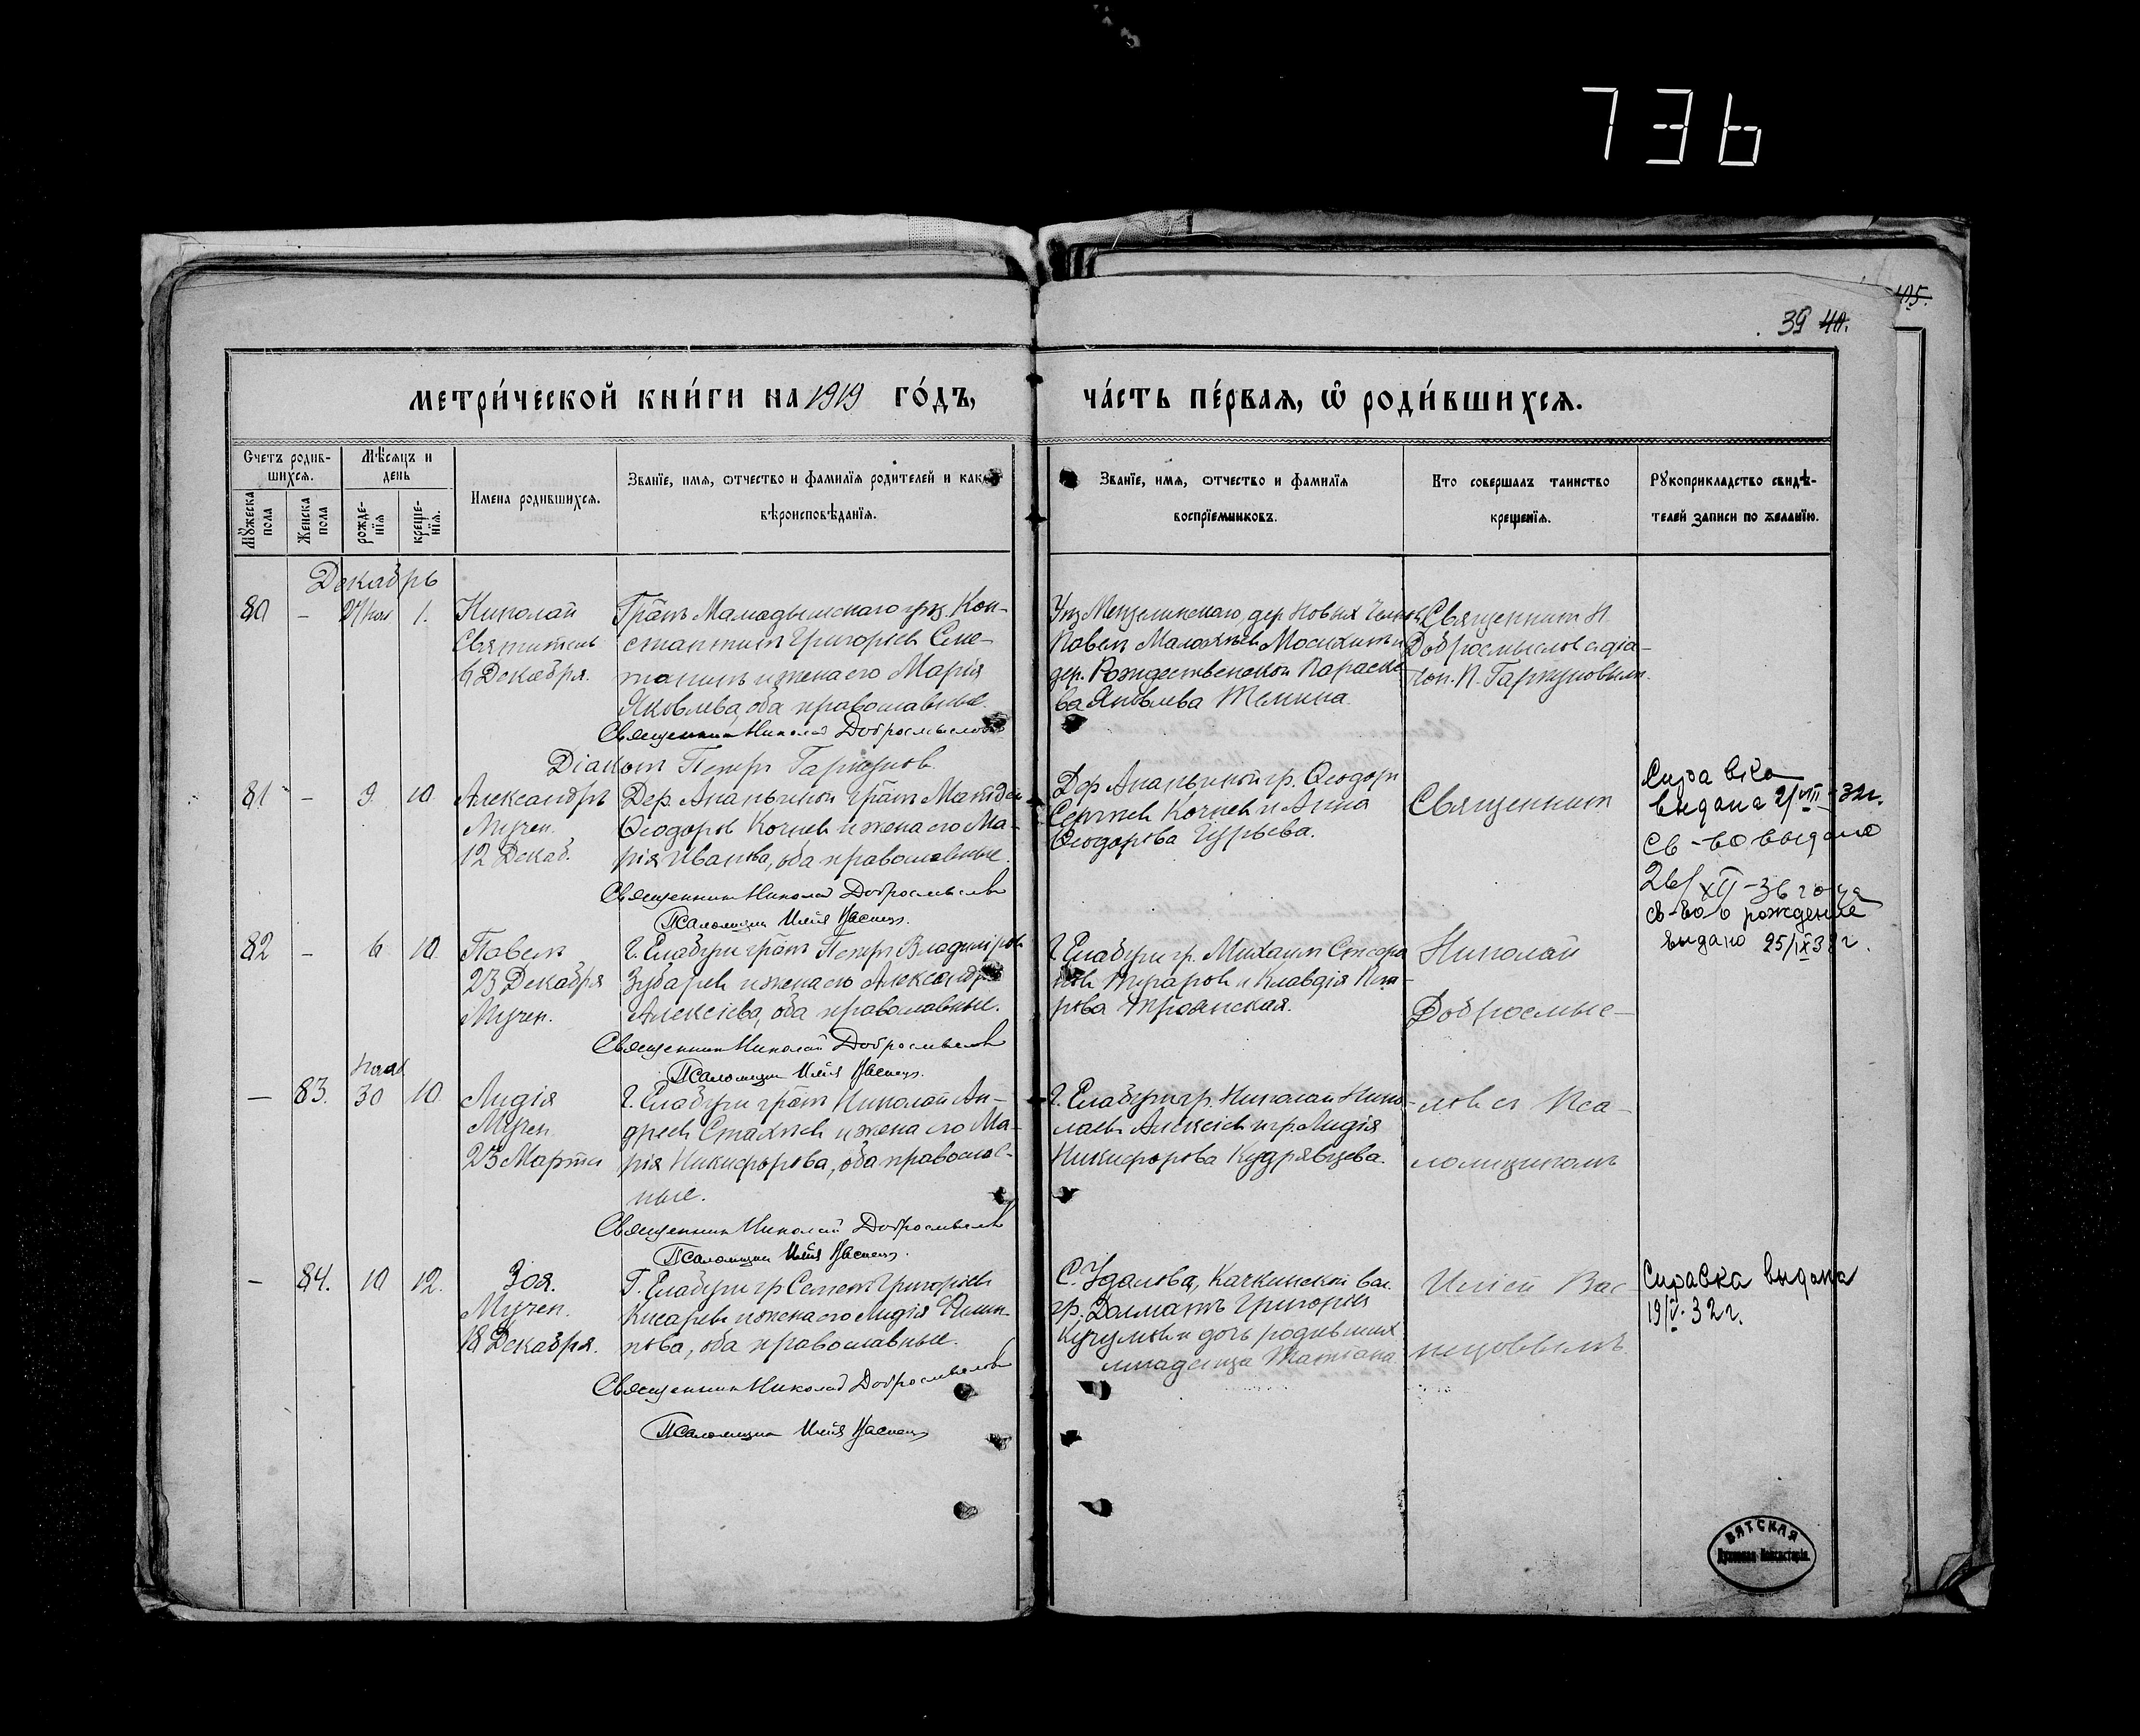 736
415.
39 40.
метри́ческой кни́ги на 1919 го́дъ,
ча́сть пе́рвая, ѡ҆ роди́вшихся.
Счетъ родив-
шихся.
Мѣсяцъ и
день
Мꙋжеска
пола
Женска
пола
рожде-
нїя
креще-
нїя.
Имена родившихся.
Званїе, имя, ѿчество и фамилїя родителей и какого
вѣроисповѣданїя.
Званїе, имя, ѿчество и фамилїя
воспрїемниковъ.
Кто совершалъ таинство
крещенїя.
Рꙋкоприкладство свидѣ-
телей записи по желанїю.
Декабрь
80 – 27/ноя 1.
Николай
Святитель
6 Декабря.
Гр̃нъ Мамадышскаго уѣз. Кон-
стантинъ Григорьев
и жена его Марія
Яковлева, оба православные.
Священник Николай Добросмыслов
Діакон Петръ Гаркунов.
Уѣз Мензелинскаго, дер. Новых Челнов
Павелъ
дер. Рождественской Параске-
ва Яковлева
Священник Н.
Добросмыслов с діа-
кон. П. Гаркуновым.
81 – 9. 10.
Александръ
Мучен.
12 Декаб.
Дер. Ананьиной гр̃нъ
Ѳеодоров Кочнев и жена его Ма-
рія Иванова, оба православные.
Священник Николай Добросмыслов
Псаломщик Илія Васнец.
Дер. Ананьиной гр. Ѳеодоръ
Сергѣев Кочнев и Анна
Ѳеодорова Гурьева.
Священник
Справка
выдана 2/VIII-32г.
Св-во выдано
26/XII-36 года
св-во о рождение
выдано 25/IX 38г.
82 – 6. 10.
Павелъ
23 Декабря
Мучен.
Г. Елабуги гр̃нъ Петръ Владиміров
Зубарев и жена его Александра
Алексіева, оба православные.
Священник Николай Добросмыслов
Псаломщик Илія Васнец.
Г. Елабуги гр. Михаилъ
и Клавдія Пет-
рова Троянская.
Николай
Добросмыс-
– 83. Нояб 30 10.
Лидія
Мучен.
23 Марта
Г. Елабуги гр̃нъ Николай Ан-
дреев Стахѣев и жена его Ма-
рія Никифорова, оба православ-
ные.
Священник Николай Добросмыслов
Псаломщик Илія Васнец.
Г. Елабуги гр. Николай Нико-
лаев Алексіев и гр. Лидія
Никифорова Кудрявцева.
лов с Пса-
ломщиком
– 84. 10 12.
Зоя.
Мучен.
18 Декабря.
Г. Елабуги гр Семенъ Григорьев
Кисарев и жена его Лидія Филип-
пова, оба православные.
Священник Николай Добросмыслов
Псаломщик Илія Васнец
С. Удалова, Качкинской вол.
гр. Далматъ Григорьев
и дочь родивших
младенца Татіана.
Иліей Вас-
нецовымъ.
Справка выдана
19/V-32г.
ВЯТСКАЯ
Духовная Консисторія.